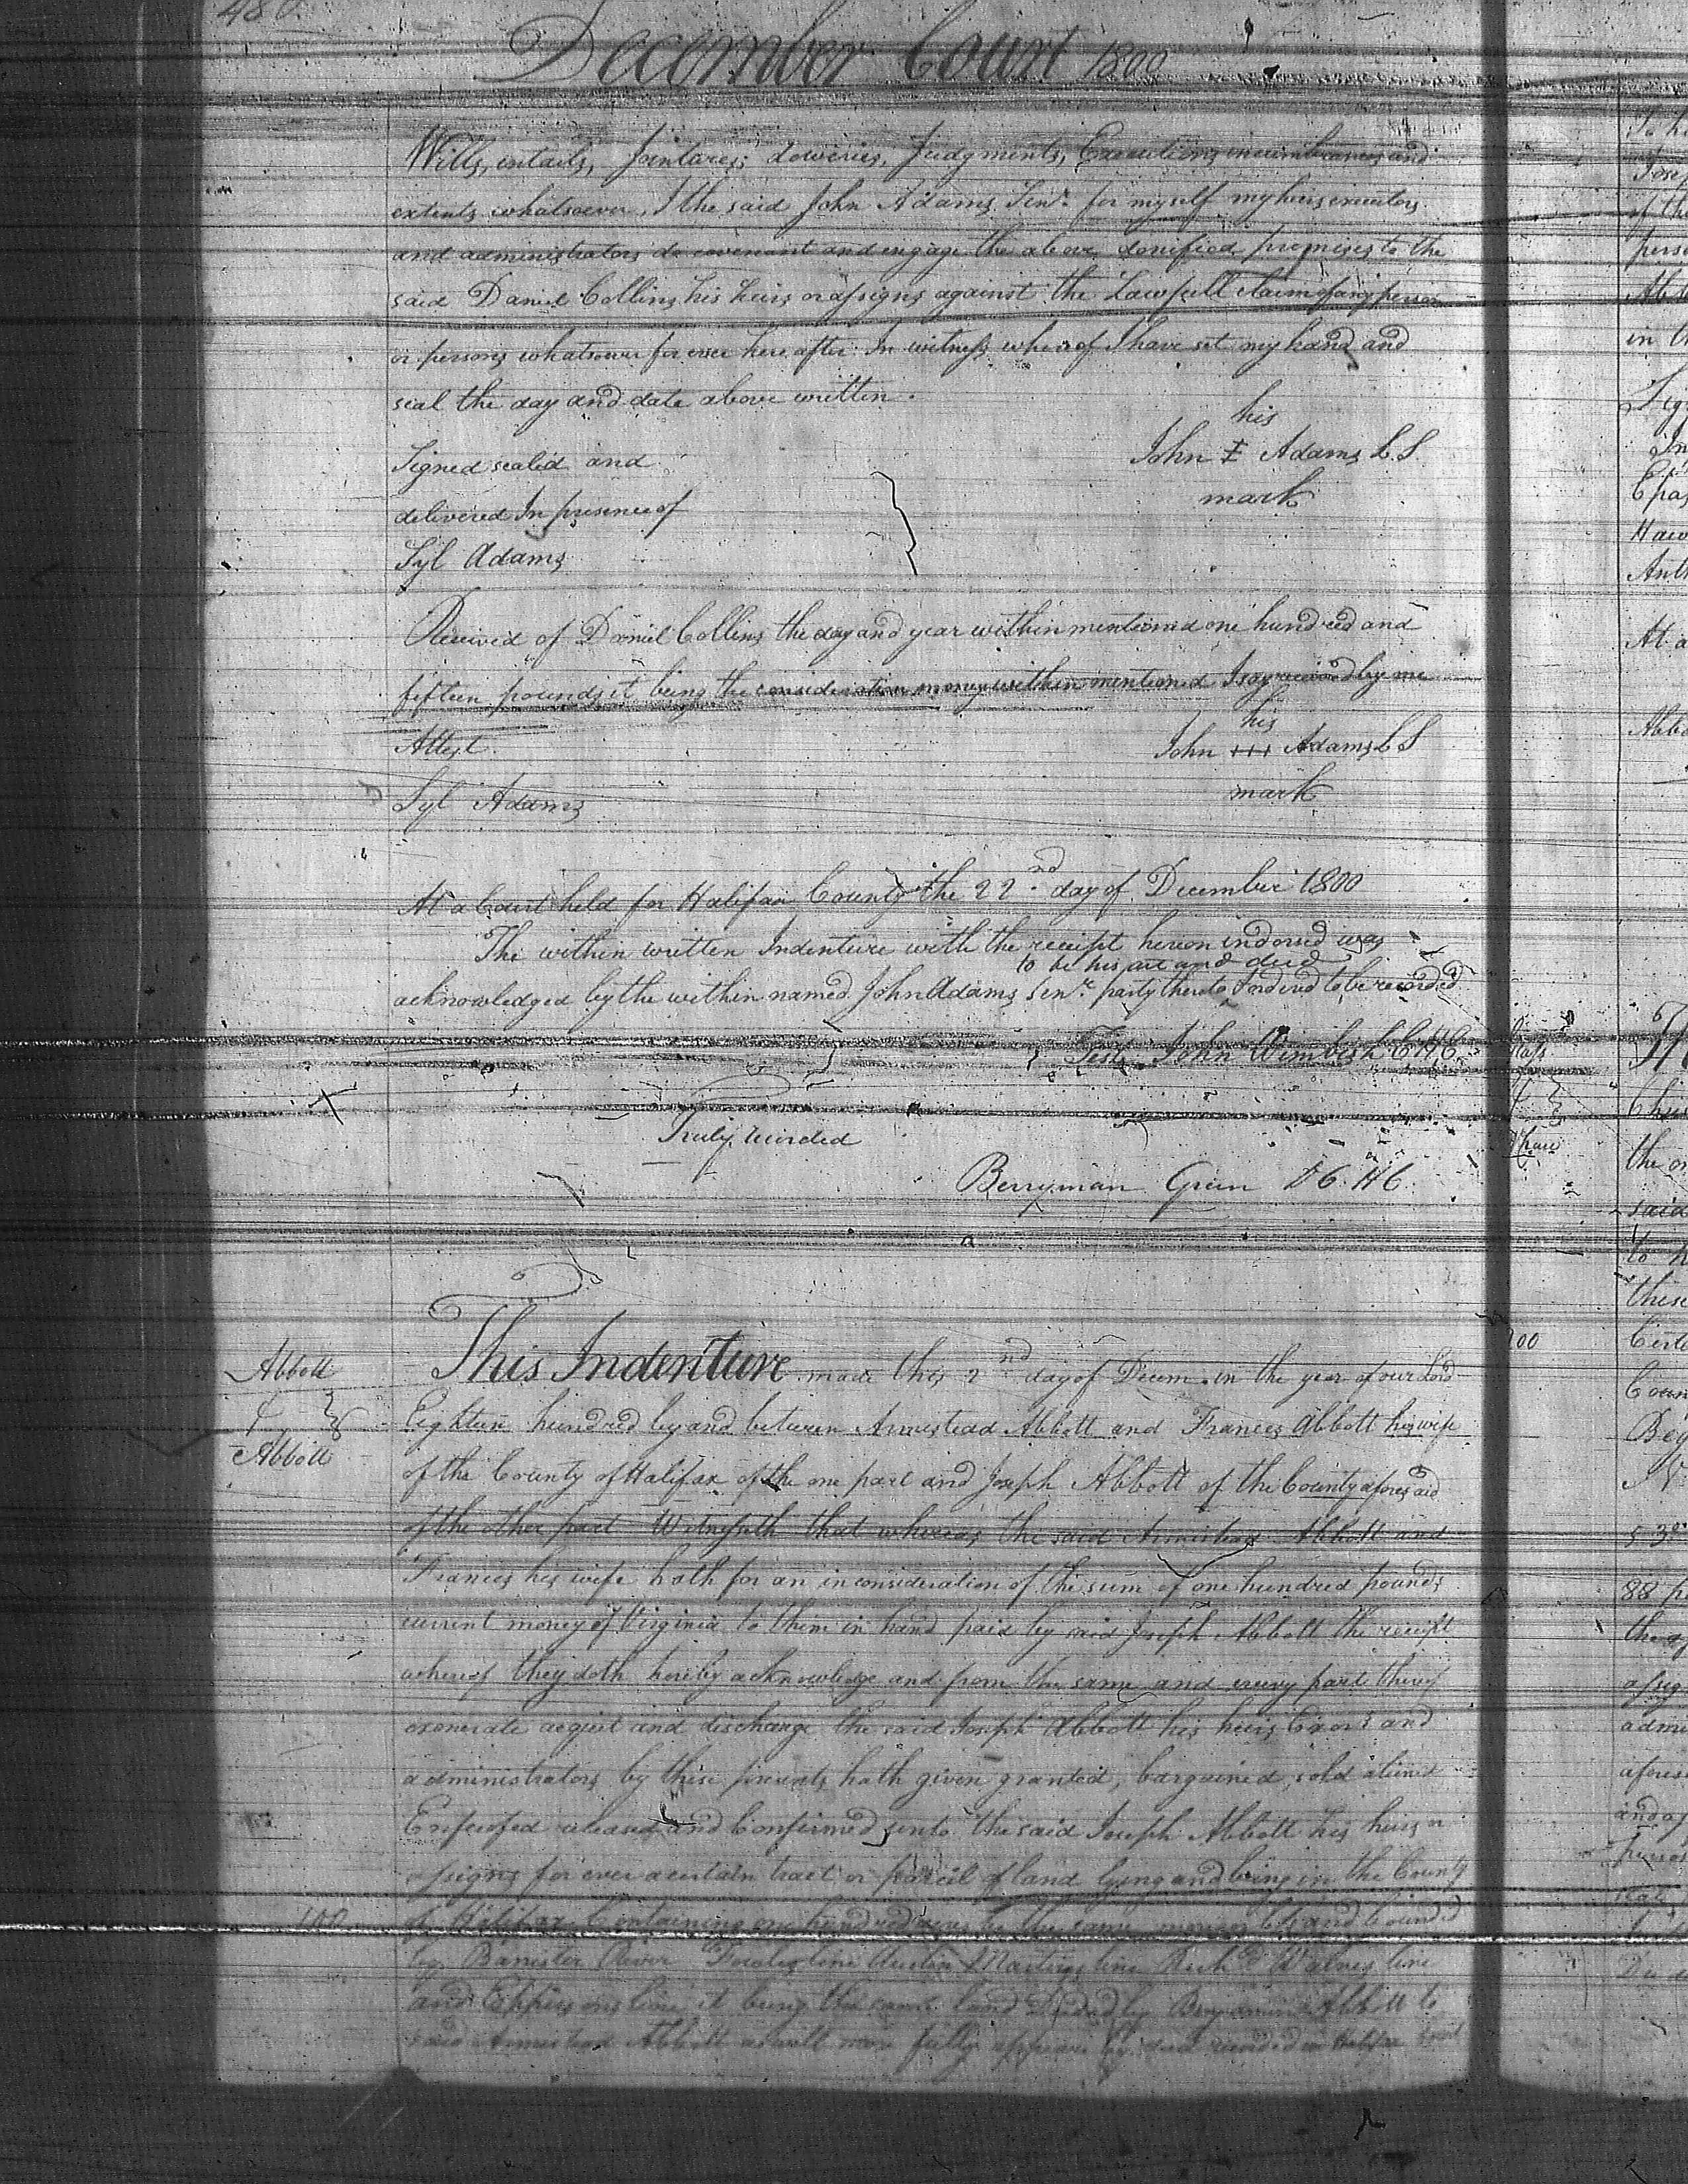 480
December Court 1800
Wills, intails, Jointures, doweries, Judgments, Executions incumbrances and
extents whatsoever, I the said John Adams Senr. for myself my heirs executors
and administrators do covenant and engage the above donified premises to the
said Daniel Collins his heirs or assigns against the Lawfull claim of any person
or persons whatsoever for ever here after In witness whereof I have set my hand and
seal the day and date above written.
his
Signed sealed and John ‡ Adams L.S
mark
delivered In presence of
Syl Adams
Received of Daniel Collins the day and year within mentioned one hundred and
fifteen pounds it being the consideration money within mentioned I say received by me
his
Attest. John +++ Adams L S
mark
Syl Adams
At a Court held for Halifax County the 22nd day of December 1800
The within written Indenture with the receipt hereon indorsed was
to be his act and deed
acknowledged by the within named John Adams Senr. party thereto & ordered to be recorded
Test. John Wimbish C H C
Truly recorded
Berryman Green D C H C
This Indenture made this 2nd day of Decem. in the year of our Lord
Abbott
&
Abbott
Eighteen hundred by and between Armistead Abbott and Frances Abbott his wife
of the County of Halifax of the one part and Joseph Abbott of the County aforesaid
of the other part Witnesseth that whereas the said Armistead Abbott and
Frances his wife hath for an in consideration of the sum of one hundred pounds
current money of Virginia to them in hand paid by said Joseph Abbott the receipt
whereof they doth hereby acknowledge and from the same and every part thereof
exonerate acquit and discharge the said Joseph Abbott his heirs Exors and
administrators by these presents hath given granted, bargained, sold aliened
Enfeofed released and Confirmed unto the said Joseph Abbott his heirs or
assigns for ever a certain tract or parcel of land lying and being in the County
100
of Halifax Containing one hundred acres be the same more or less and bounded
by Banister River line Martins line Richd Walnes line
and Eppersons line it being the same land Deeded by Benjamin Abbott to
said Armistead Abbott as will more fully appear by deed recorded in Halifax Court